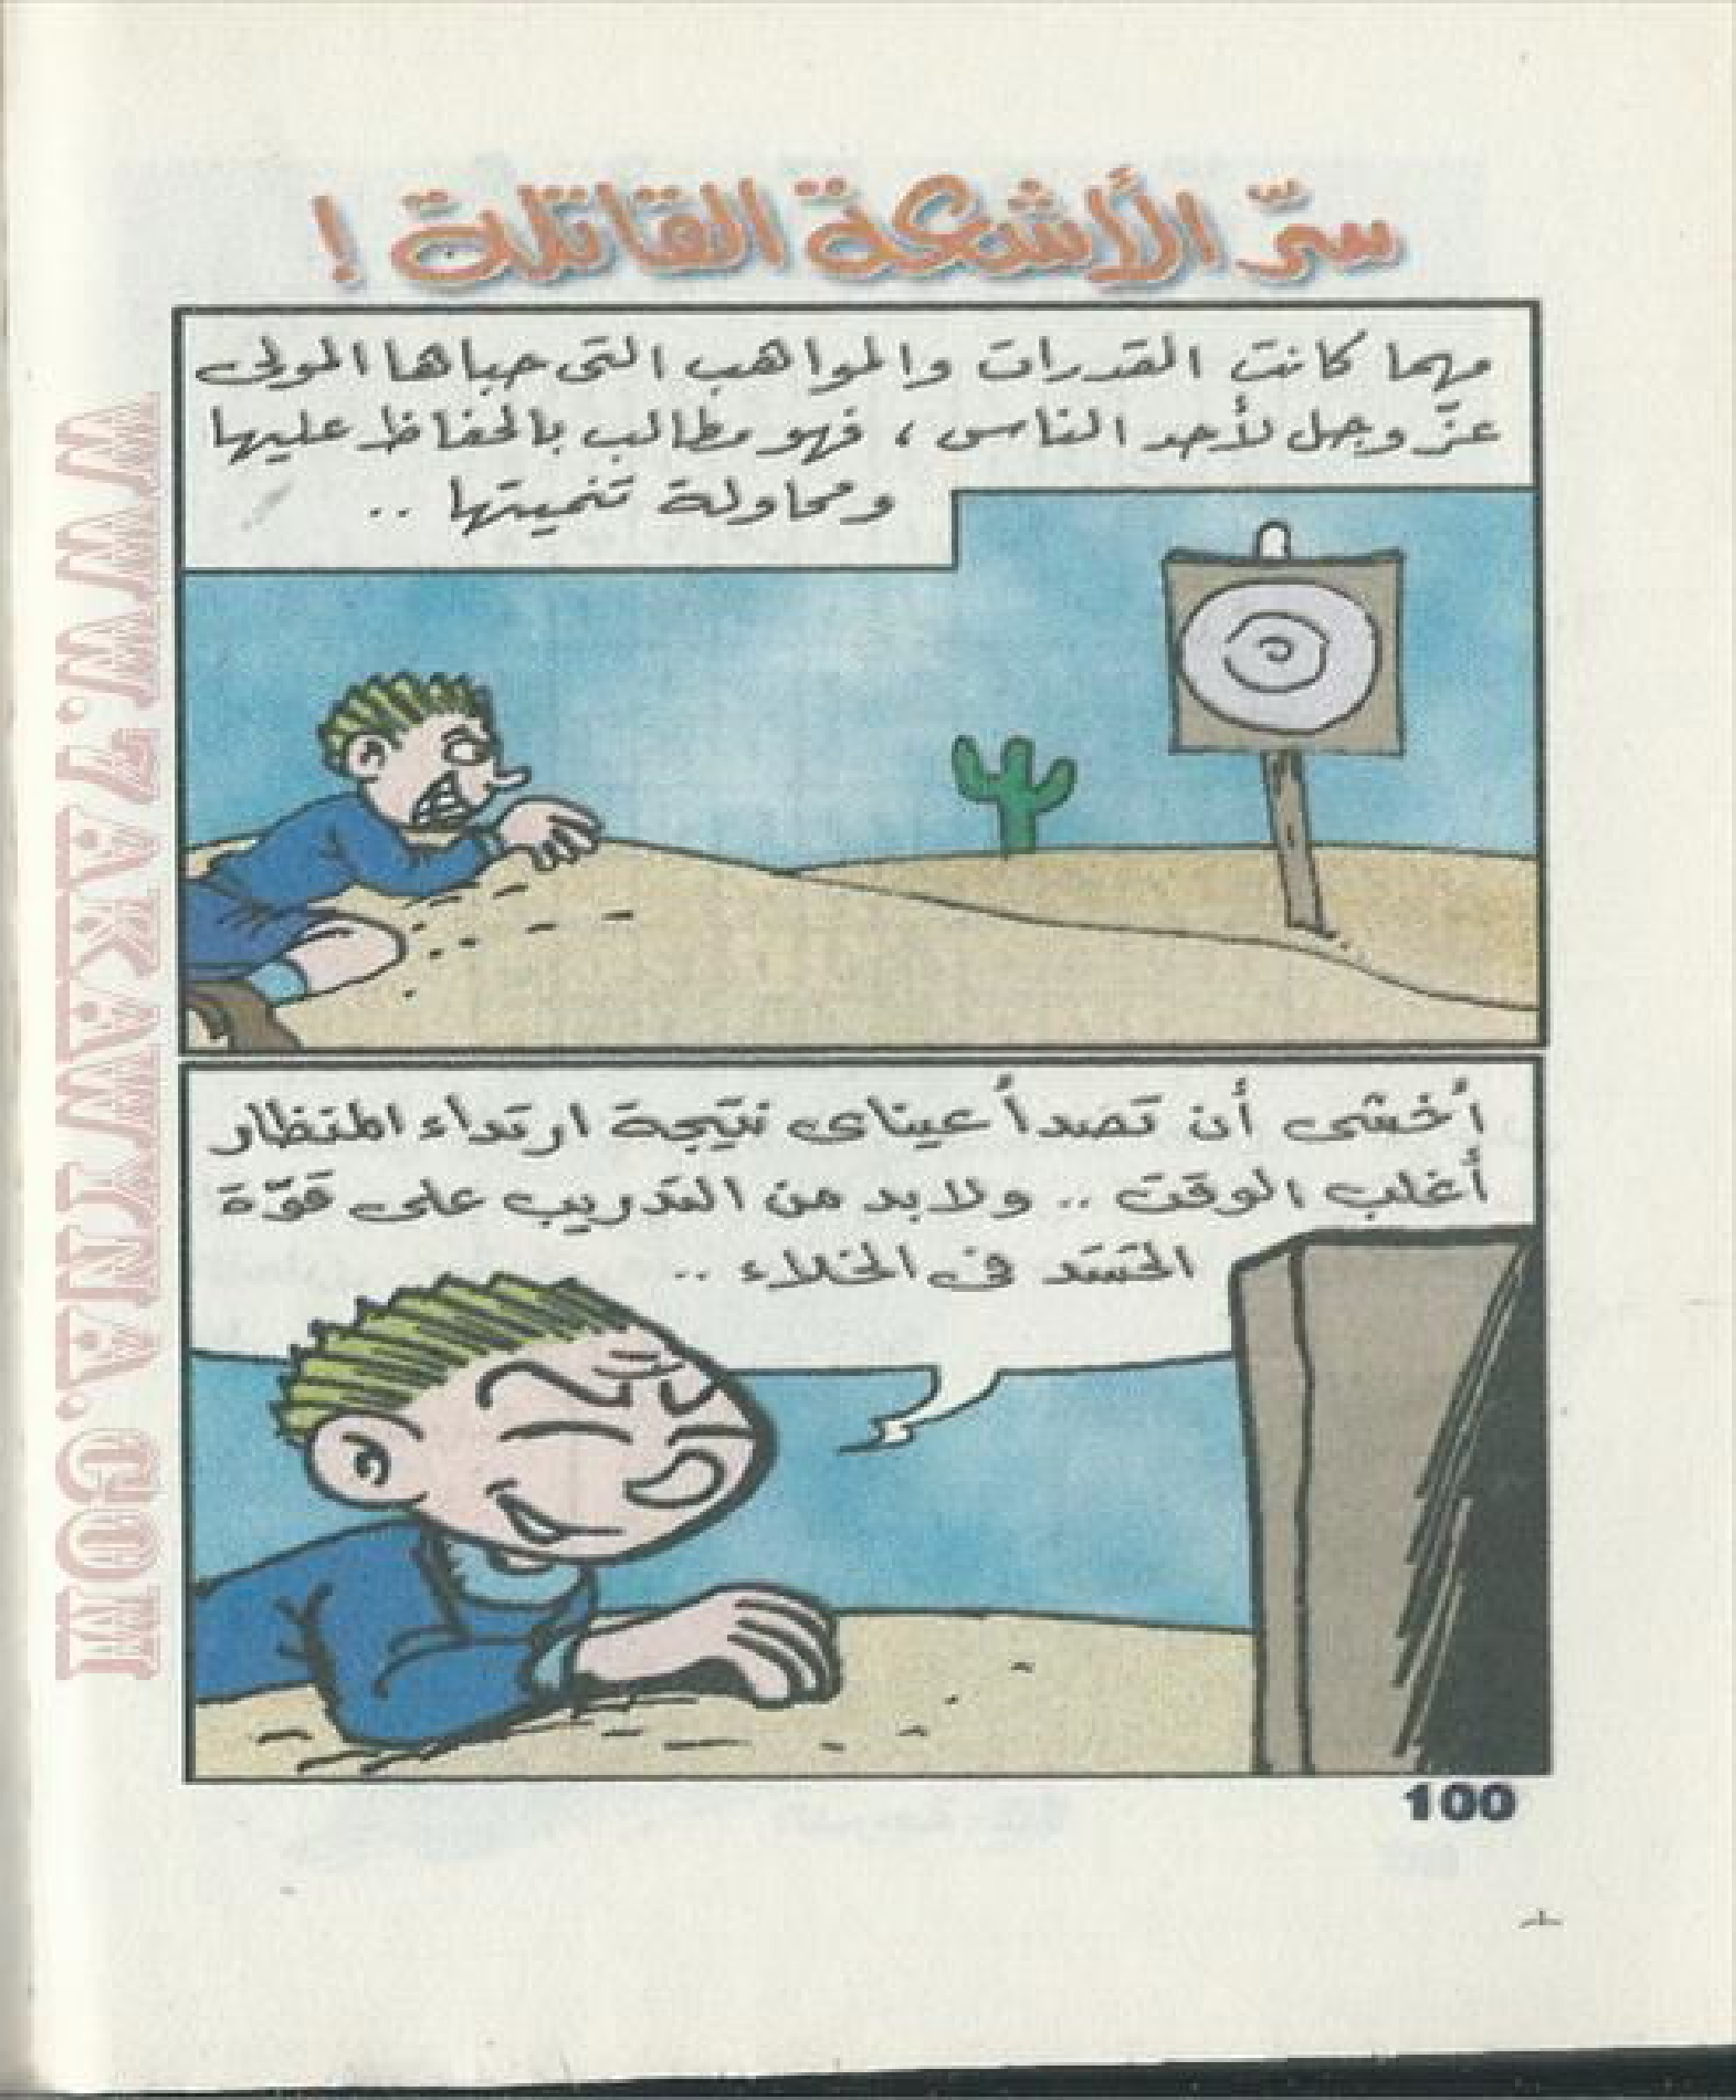 سرّ الأشعة القاتلة !
مهما كانت القدرات والمواهب التى حباها المولى
عزّ وجل لأحد الناس ، فهو مطالب بالحفاظ عليها
ومحاولة تنميتها ..
أخشى أن تصدأ عيناى نتيجة ارتداء المنظار
أغلب الوقت .. ولابد من التدريب على قوّة
الحَسَد فى الخلاء ..
100
WWW.7AKAWITNA.COM